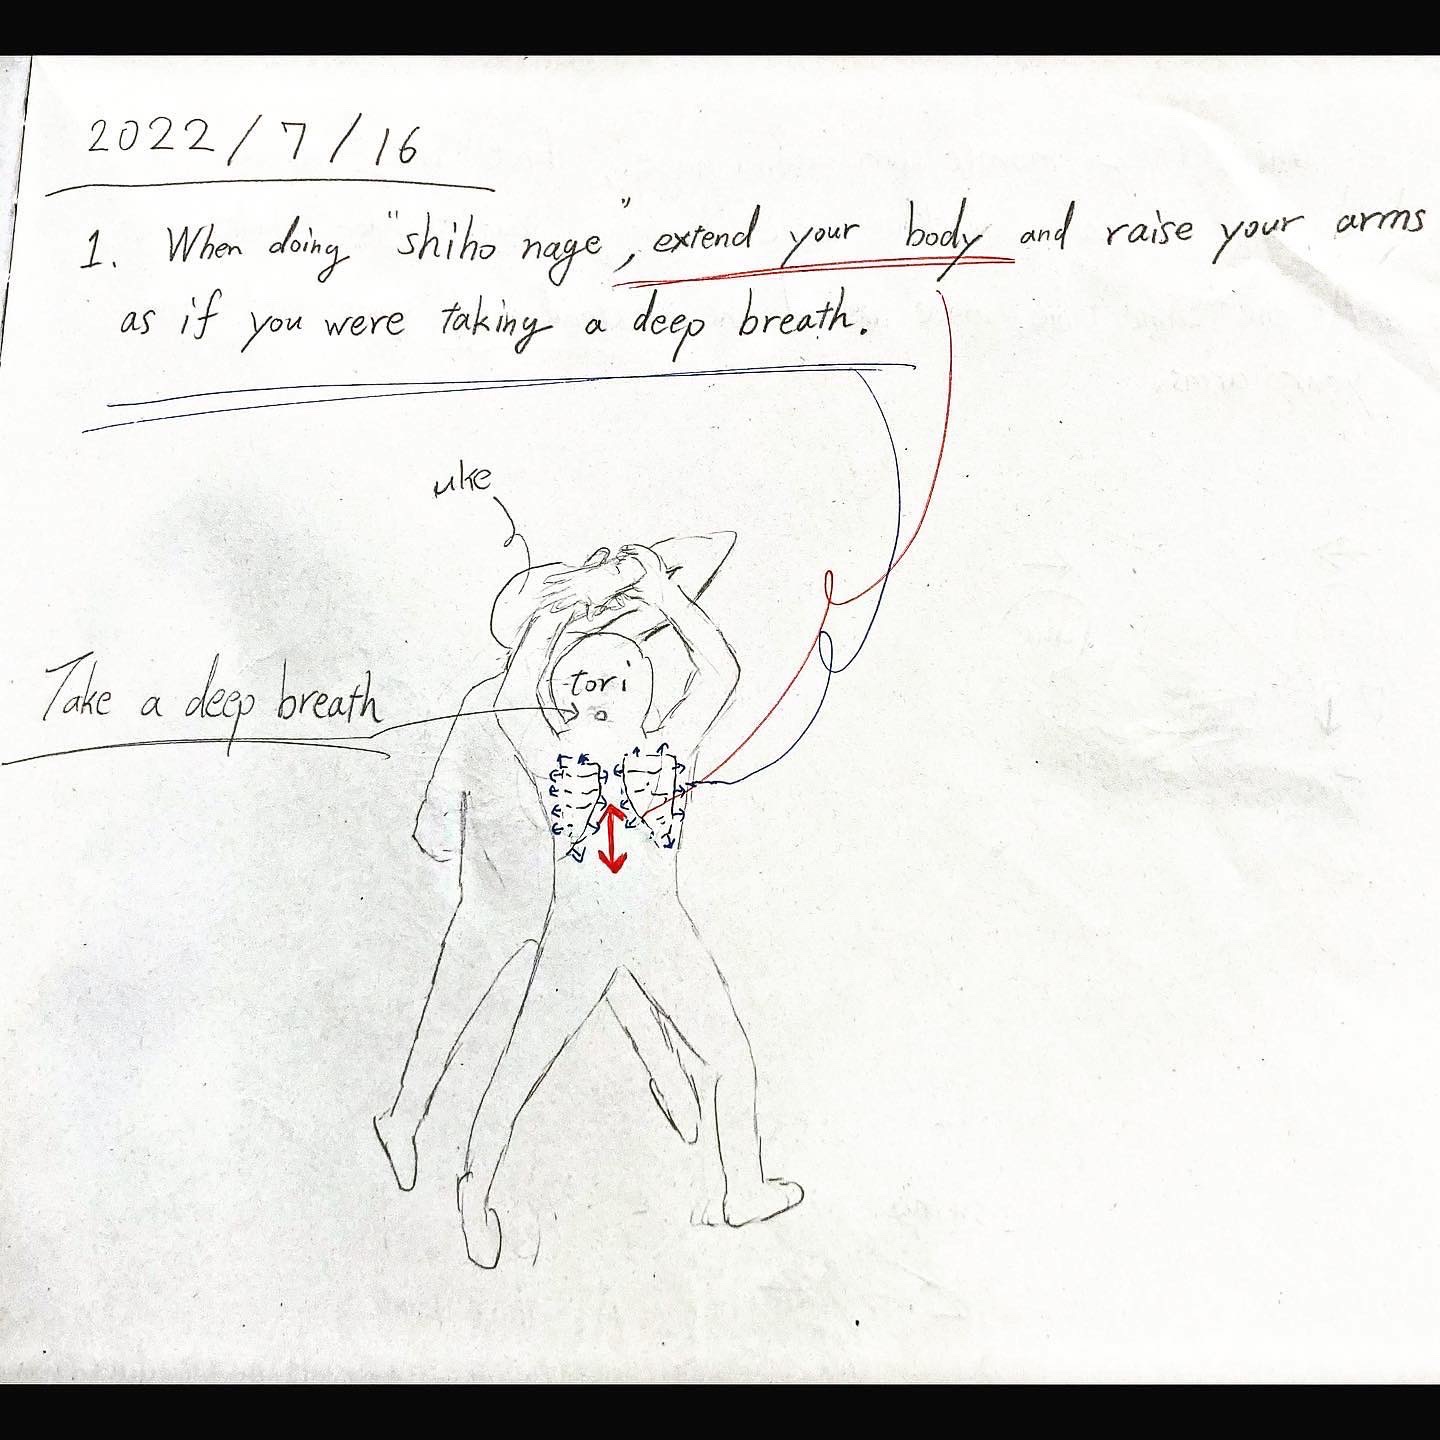 2022/7/16
1. When doing "shiho nage", extend your body and raise your arms
as if you were taking a deep breath.
uke
tori
Take a deep breath